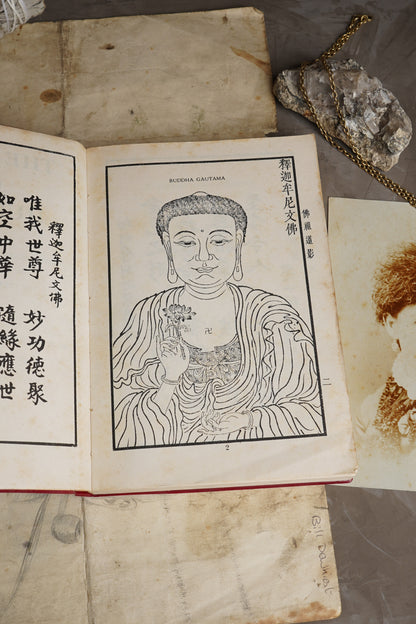 釋迦牟尼文佛
唯我世尊 妙功德聚
如空中華 隨緣應世
BUDDHA GAUTAMA
釋迦牟尼文佛
佛祖道影
卍
二
2